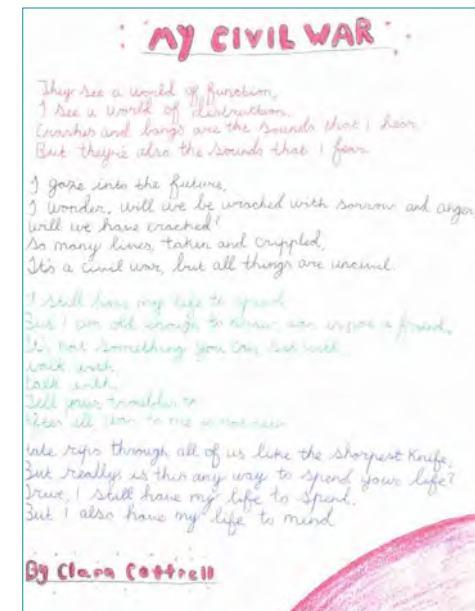 MY CIVIL WAR
They see a world of function,
I see a world of destruction.
Crashes and bangs are the sounds that I hear
But they're also the sounds that I fear
I gaze into the future,
I wonder, will we be wracked with sorrow and anger
will we have cracked?
So many lives, taken and crippled,
It's a civil war, but all things are uncivil.
I still have my life to spend
But I am old enough to know war is not a friend.
It's not something you can sit with,
walk with,
talk with,
Tell your troubles to
After all war to me is not new
Hate rips through all of us like the sharpest Knife,
But really is this any way to spend your life?
True, I still have my life to spend.
But i also have my life to mind
By Clara Cottrell